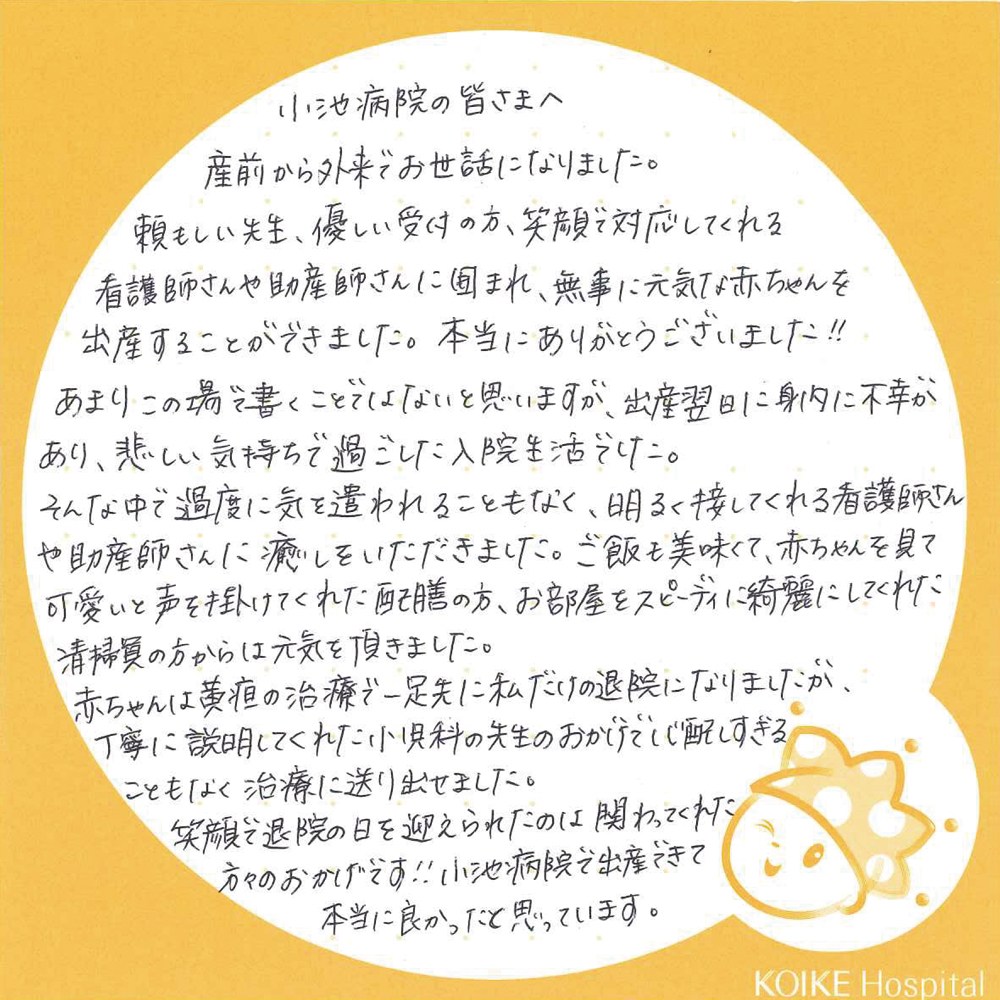 小池病院の皆さまへ
産前から外来でお世話になりました。
頼もしい先生、優しい受付の方、笑顔で対応してくれる
看護師さんや助産師さんに囲まれ、無事に元気な赤ちゃんを
出産することができました。本当にありがとうございました!!
あまりこの場で書くことではないと思いますが、出産翌日に身内に不幸が
あり、悲しい気持ちで過ごした入院生活でした。
そんな中で過度に気を遣われることもなく、明るく接してくれる看護師さん
や助産師さんに癒しをいただきました。ご飯も美味くて、赤ちゃんを見て
可愛いと声を掛けてくれた配膳の方、お部屋をスピーディに綺麗にしてくれた
清掃員の方からは元気を頂きました。
赤ちゃんは黄疸の治療で一足先に私だけの退院になりましたが、
丁寧に説明してくれた小児科の先生のおかげで心配しすぎる
こともなく治療に送り出せました。
笑顔で退院の日を迎えられたのは関わってくれた
方々のおかげです!!小池病院で出産できて
本当に良かったと思っています。
KOIKE Hospital